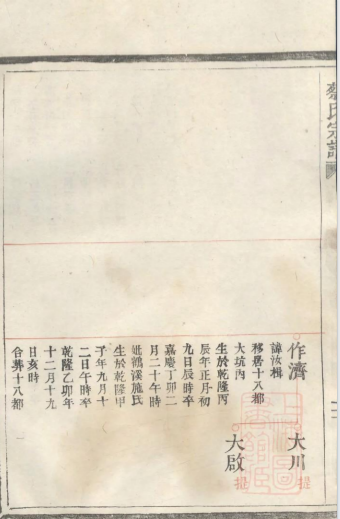 蔡氏宗譜
作濟
諱汝楫
移居十八都
大坑內
生於乾隆丙
辰年正月初
九日辰時卒
嘉慶丁卯二
月二十午時
妣鶴溪施氏
生於乾隆甲
子年九月十
二日午時卒
乾隆乙卯年
十二月十九
日亥時
合葬十八都
大川
提
大啟
提